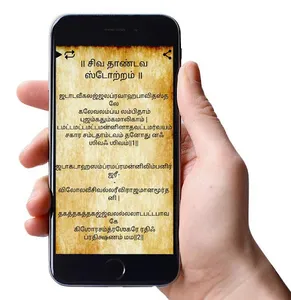 ॥ சிவ தாண்டவ
ஸ்டோற்றம் ॥
ஜடாடவீகலஜ்ஜலப்ரவாஹபாவிதஸ்த
லே
கலேவலம்ப்ய லம்பிதாம்
புஜம்கதும்கமாலிகாம் |
டமட்டமட்டமட்டமன்னினாதவட்டமர்வயம்
சகார சம்டதாம்டவம் தனோது னஃ
ஶிவஃ ஶிவம்||1||
ஜடாகடாஹஸம்ப்ரமப்ரமன்னிலிம்பனிர்
ஜரீ-
விலோலவீசிவல்லரீவிராஜமானமூர்தனி |
தகத்தகத்தகஜ்ஜ்வலல்லலாடபட்டபாவ
கே
கிஶோரசம்த்ரஶேகரே ரதிஃ
ப்ரதிக்ஷணம் மம||2||